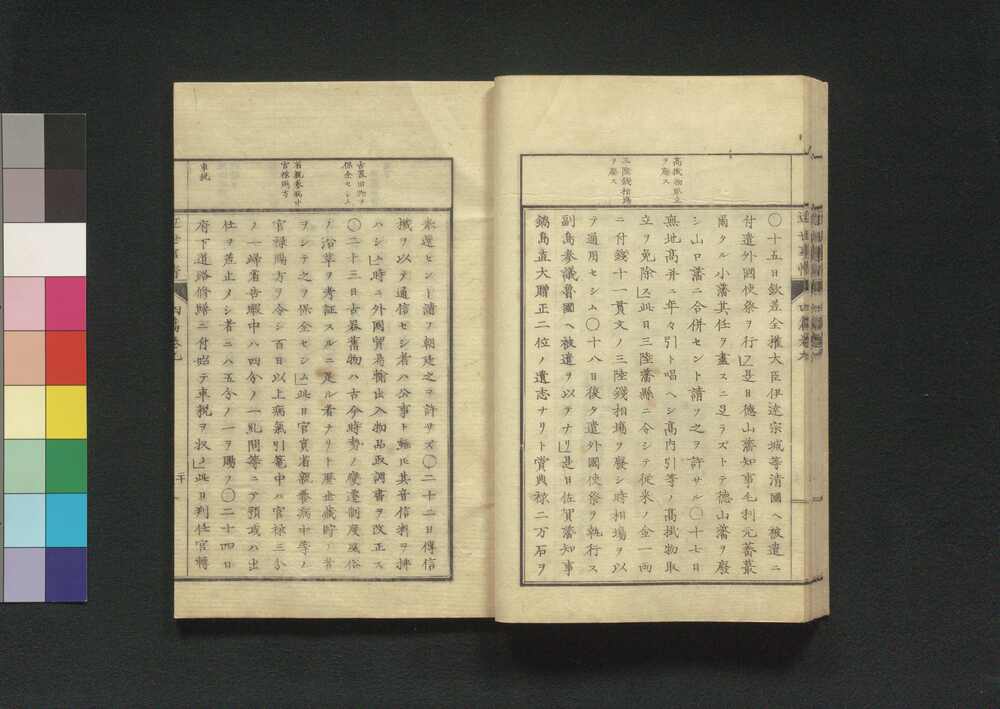 高掛物取立
ヲ廃ス
三陸銭相場
ヲ廃ス
〇十五日欽差全権大臣伊達宗城等清國ヘ被遣ニ
付遣外國使祭ヲ行フ」是日徳山藩知事毛利元蕃叢
爾タル小藩其任ヲ盡スニ足ラズトテ徳山藩ヲ廢
シ山口藩ニ合併セント請フ之ヲ許サル〇十七日
無地高并ニ年々引ト唱ヘシ高内引等ノ高掛物取
立ヲ免除ス」此日三陸藩縣ニ令シテ従来ノ金一両
ニ付銭十一貫文ノ三陸錢相場ヲ廢シ時相場ヲ以
テ通用セシム〇十八日復タ遣外國使祭ヲ執行ス
副島参議魯國ヘ被遣ヲ以テナリ」是日佐賀藩知事
鍋島直大贈正二位ノ遺志ナリト賞典禄二万石ヲ
古器旧物ヲ
保全セシム
省親養病中
官禄賜方
車税
米還セント請フ朝廷之ヲ許サズ〇二十二日傳信
機ヲ以テ通信セシ者ハ公事ト雖𪜈其音信料ヲ拂
ハシム」時ニ外國貿易輸出入物品取調書ヲ改正ス
〇二十三日古器舊物ハ古今時勢ノ變遷制度風俗
ノ沿革ヲ考証スルニ足ル者ナリト歴世蔵貯ノ者
ヲシテ之ヲ保全セシム」此日官員省親養病中等ノ
官禄賜方ヲ令シ百日以上病氣引篭中ハ官禄三分
ノ一歸省告暇中ハ四分ノ一乱間等ニテ預或ハ出
仕ヲ差止メシ者ニハ五分ノ一ヲ賜フ〇二十四日
府下道路修繕ニ付始テ車税ヲ収ム」此日判任官轉